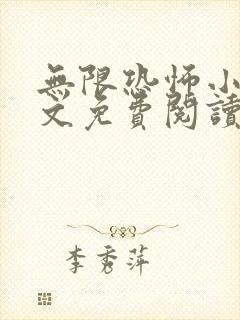 無限恐怖小
文免費閱讀
李秀萍